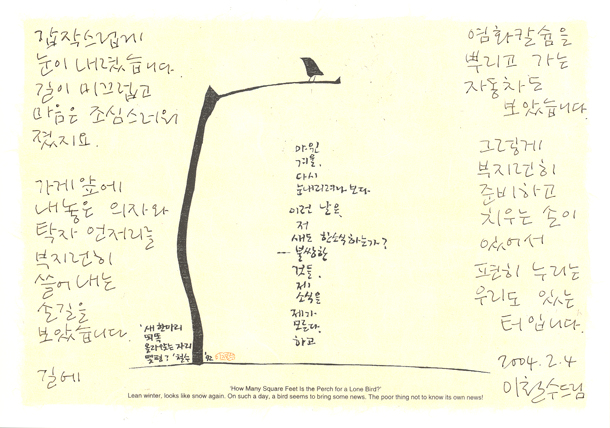 갑작스럽게
눈이 내렸습니다.
길이 미끄럽고
마음은 조심스러워
졌지요.
가게 앞에
내놓은 의자와
탁자 언저리를
부지런히
쓸어 내는
손길을
보았습니다.
길에
염화칼슘을
뿌리고 가는
자동차도
보았습니다.
그렇게
부지런히
준비하고
치우는 손이
있어서
편히 누리는
우리도 있는
터입니다.
2004. 2. 4
이철수 드림
마읜
겨울.
다시
눈내리려나 보다.
이런 날은,
저
새도 한소식 하는가?
불쌍한
것들.
제
소식은
제가
모른다.
하고
'새 한마리
오똑
올라앉는 자리
몇평?' 철수
'How Many Square Feet Is the Perch for a Lone Bird?'
Lean winter, looks like snow again. On such a day, a bird seems to bring some news. The poor thing not to know its own news!